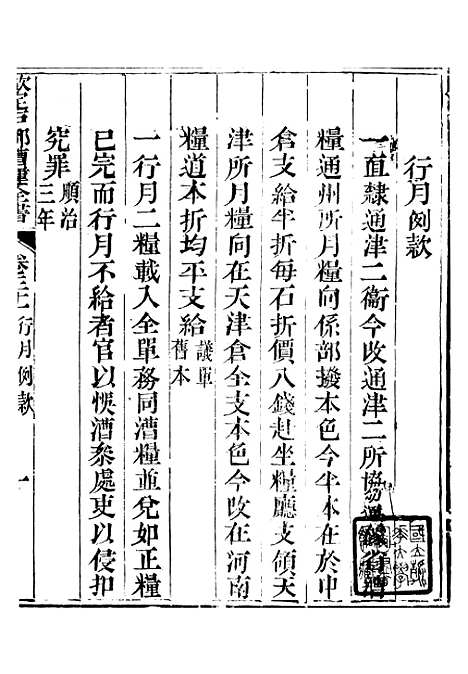 行月例款
一直隸通津二衞今改通津二所協運
糧通州所月糧向係部撥本色今半本在於中
倉支給半折每石折價八錢赴坐糧廳支領天
津所月糧向在天津倉全支本色今改在河南
糧道本折均平支給議單舊本
一行月二糧載入全單務同漕糧並兌如正糧
已完而行月不給者官以悞漕叅處吏以侵扣
究罪順治三年
欽定戶部漕運全書 卷三十 行月例款 一